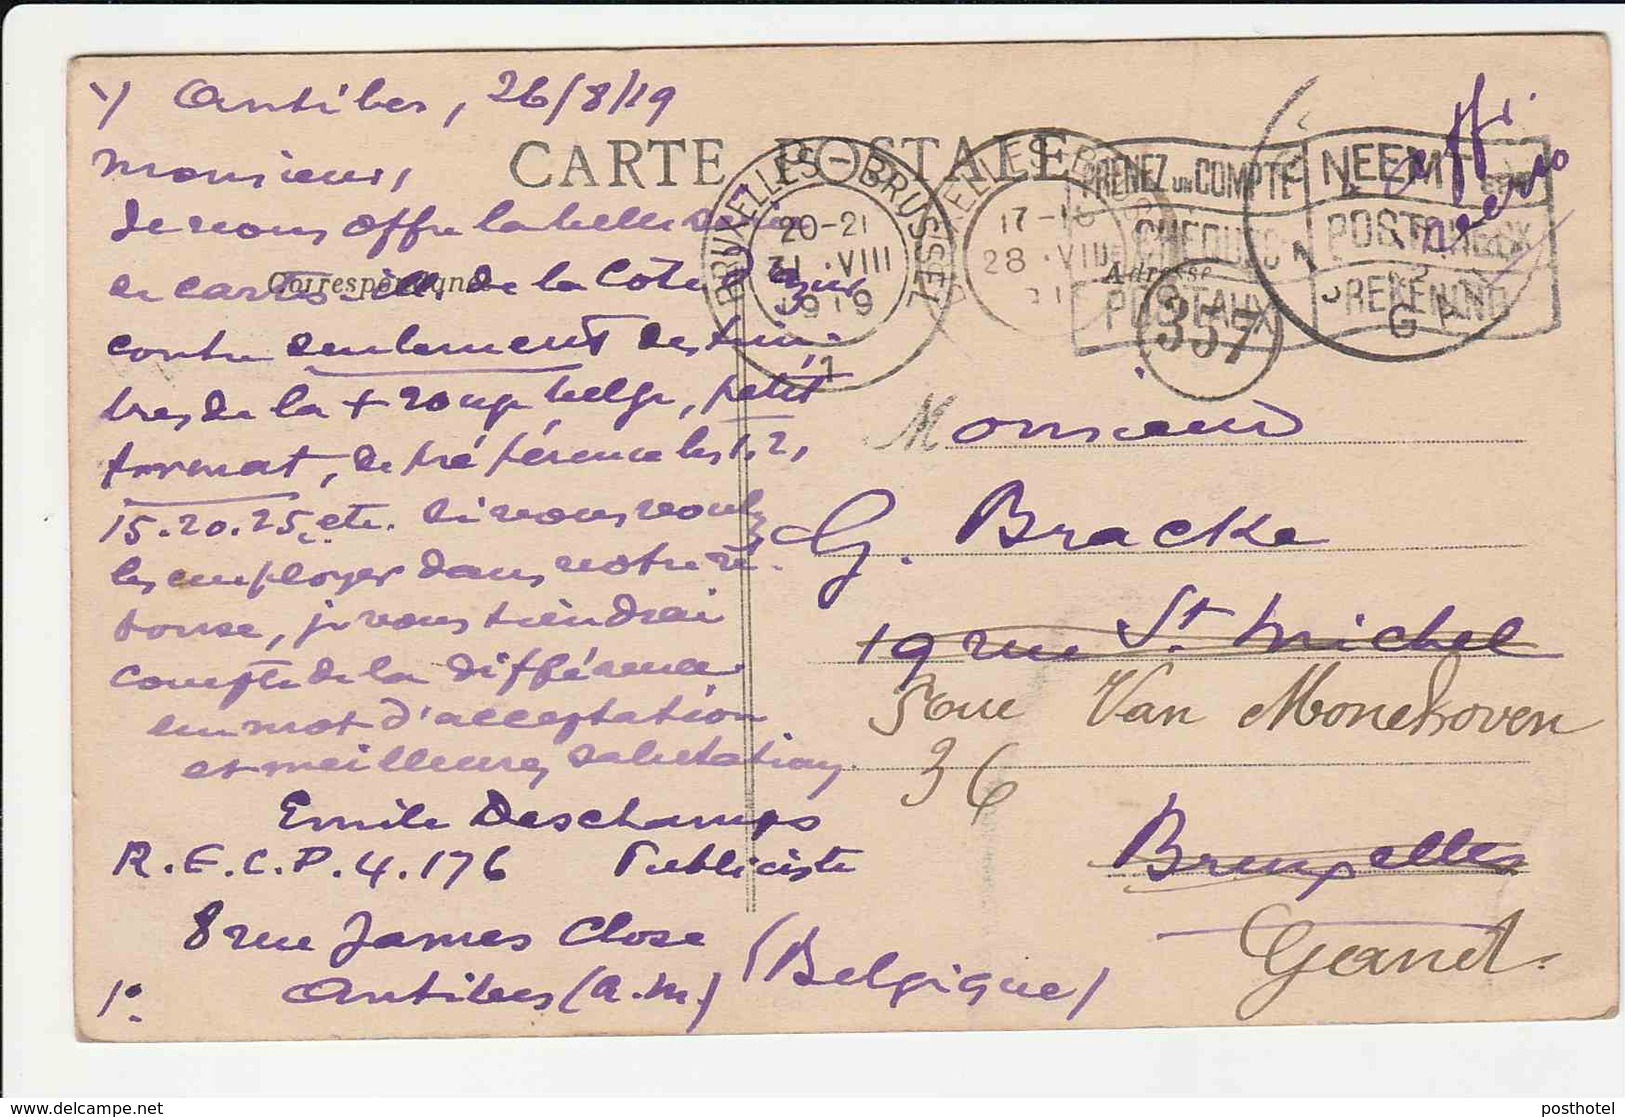 Antibes, 26/8/19
CARTE POSTALE
Monsieur,
Je vous offre la belle série
Correspondance
de cartes ill. de la Côte d'Azur
contre seulement des tim-
bres de la + rouge belge, petit
format, de préférence les 1, 2,
15.20.25, etc. Si vous voulez
les employer dans votre ré-
ponse, je vous tiendrai
compte de la différence.
un mot d'acceptation
et meilleures salutations.
Emile Deschamps
R.E.C.P.4.176 Publiciste
8 rue James Close
1° Antibes (A.M.)
BRUXELLES-BRUSSEL
20-21
31.VIII
1919
1
17-18
28.VIII
PRENEZ UN COMPTE
CHEQUES
POSTAUX
NEEMT EEN
POSTCHECK
REKENING
G
Adresse
357
Monsieur
G. Bracke
19 rue St Michel
Rue Van Monckhoven
36
Bruxelles
Gand.
(Belgique)
delcampe.net
posthotel